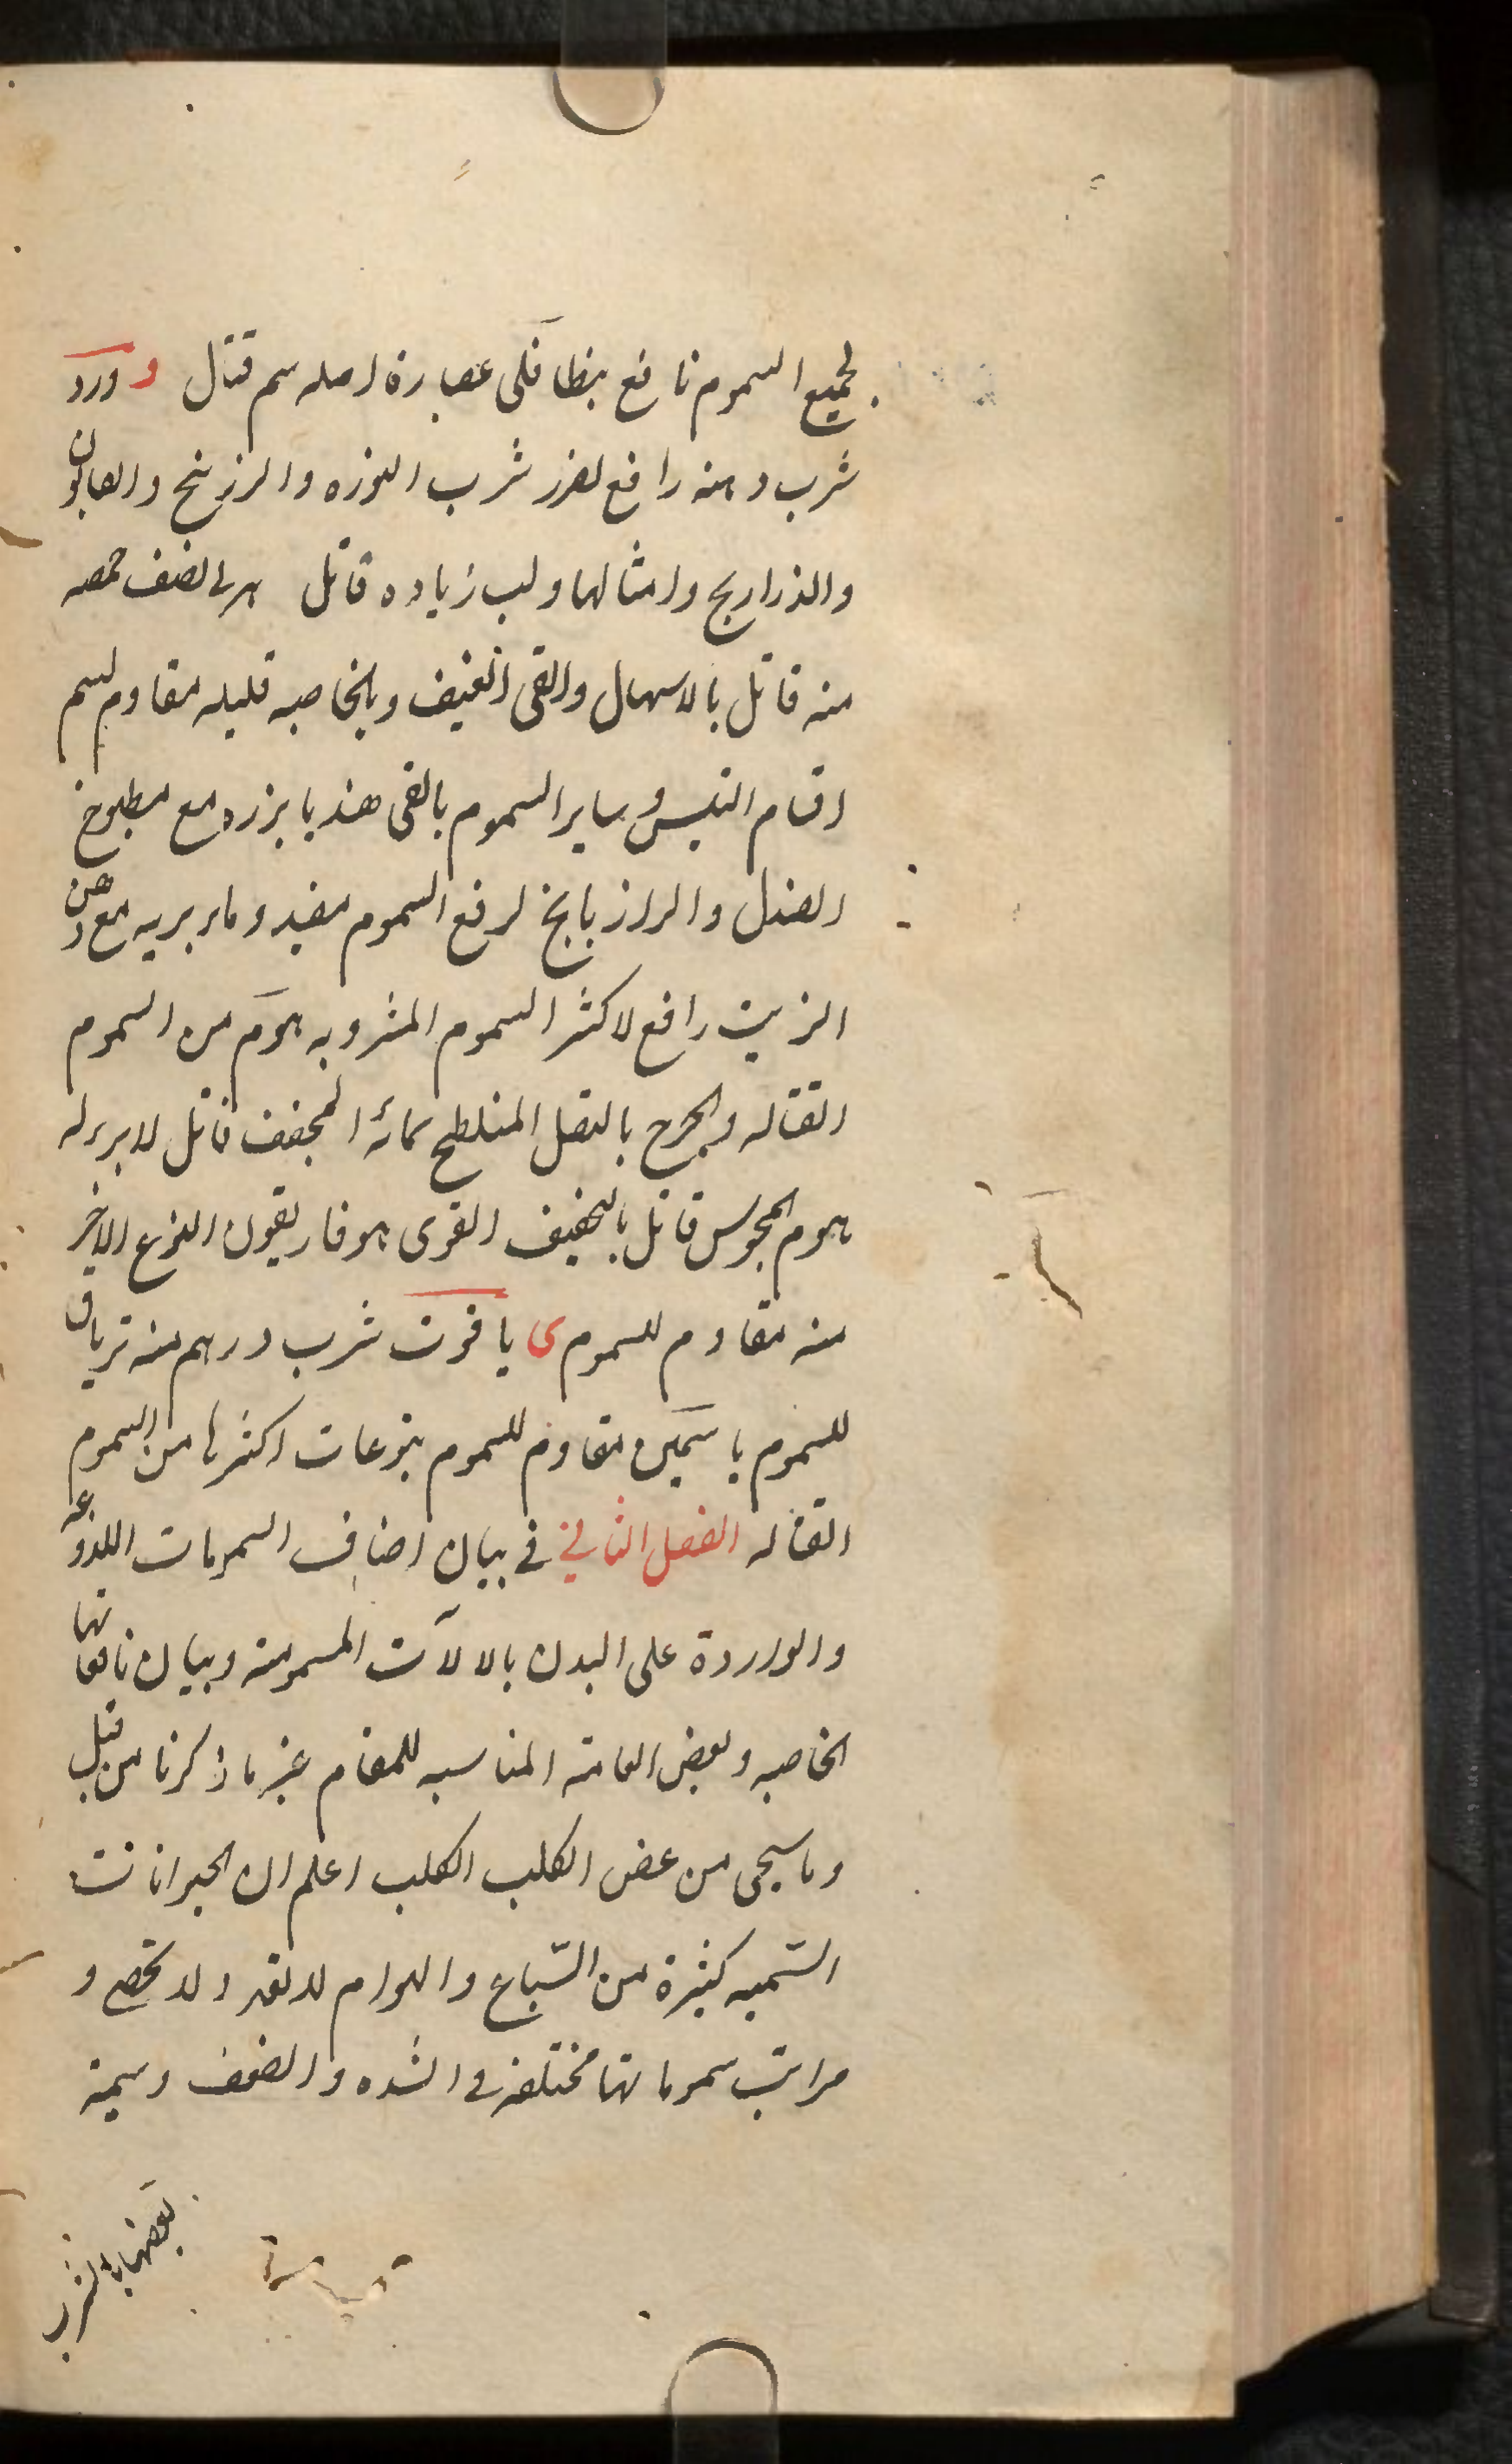 لجميع السموم نافع بنطافلى عصارة اصله سم قتال و ورد
شرب دهنه رافع لضرر شرب النوره والزرنيخ والصابون
والذراريح وامثالها ولب زياده قاتل نصف حمصه
منه قاتل بالاسهال والقى العنيف وبالخاصيه قليله مقاوم لسم
اقسام البيش وساير السموم بالقى هندبا بزره مع مطبوخ
الصندل والرازيانج لرفع السموم مفيد وماء بريه مع دهن
الزيت رافع لاكثر السموم المشروبه هوم من السموم
القتاله والجرح بالنصل المتلطخ بمائه المجفف قاتل لا برء له
هوم المجوس قاتل بالتجفيف القوى هوفاريقون النوع الاخر
منه مقاوم للسموم ى ياقوت شرب درهم منه ترياق
للسموم ياسمين مقاوم للسموم يتوعات اكثرها من السموم
القتاله الفصل الثاني في بيان اصناف السمومات اللدوغه
والواردة على البدن بالالآت المسمومة وبيان نافعاتها
الخاصيه وبعض العامة المناسبه للمقام غير ما ذكرنا من قبل
وما سيجى من عض الكلب الكلب اعلم ان الحيوانات
السّميه كثيرة من السّباع والهوام لا تعد ولا تحصى و
مراتب سموماتها مختلفة في الشده والضعف وسمية
بعضها بالشرب